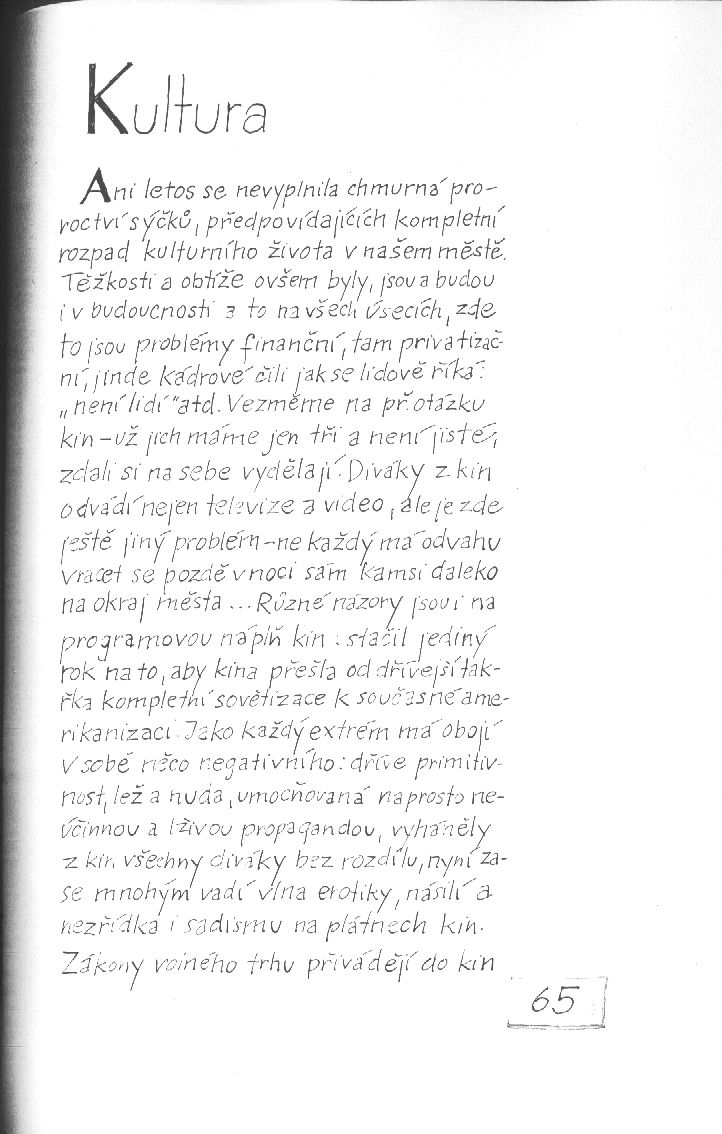 Kultura
Ani letos se nevyplnila chmurná pro-
roctví sýčků, předpovídajících kompletní
rozpad kulturního života v našem městě.
Těžkosti a obtíže ovšem byly, jsou a budou
i v budoucnosti a to na všech úsecích, zde
to jsou problémy finanční, tam privatizač-
ní, jinde kádrové čili jak se lidově říká:
„není lidí" atd. Vezměme na př. otázku
kin – už jich máme jen tři a není jisté,
zdali si na sebe vydělají. Diváky z kin
odvádí nejen televize a video, ale je zde
ještě jiný problém – ne každý má odvahu
vracet se pozdě v noci sám kamsi daleko
na okraj města ... Různé názory jsou i na
programovou náplň kin : stačil jediný
rok na to, aby kina přešla od dřívější tak-
řka kompletní sovětizace k současné ame-
rikanizaci. Jako každý extrém má obojí
v sobě něco negativního: dříve primitiv-
nost, lež a nuda, umocňovaná naprosto ne-
účinnou a lživou propagandou, vyháněly
z kin všechny diváky bez rozdílu, nyní za-
se mnohým vadí vlna erotiky, násilí a
nezřídka i sadismu na plátnech kin.
Zákony volného trhu přivádějí do kin
65